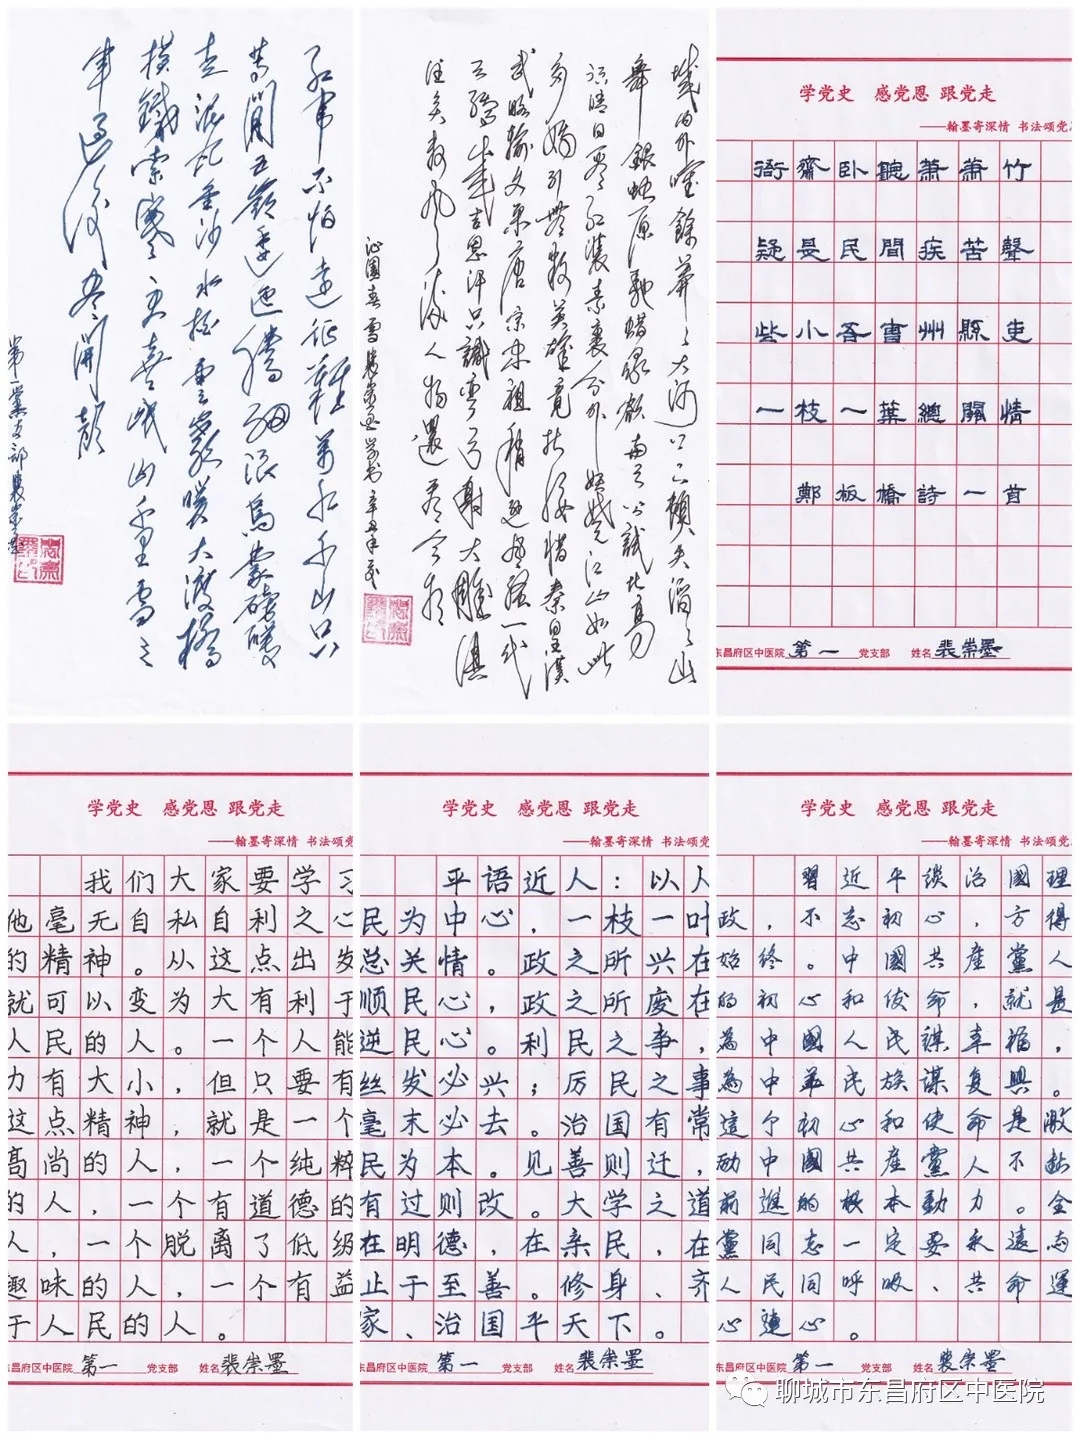 红军不怕远征难万水千山只
等闲五岭逶迤腾细浪乌蒙磅礴
走泥丸金沙水拍云崖暖大渡桥
横铁索寒更喜岷山千里雪三
军过后尽开颜
第一党支部裴崇墨
城内外惟餘莽莽大河上下顿失滔滔山
舞银蛇原驰蜡象欲与天公试比高
须晴日看红装素裹分外妖娆江山如此
多娇引无数英雄竞折腰惜秦皇汉
武略输文采唐宗宋祖稍逊风骚一代
天骄成吉思汗只識弯弓射大雕俱
往矣数风流人物还看今朝
沁園春雪裴崇墨学书辛丑年
学党史 感党恩 跟党走
——翰墨寄深情 书法颂党
衙齋卧聽蕭蕭竹
疑是民間疾苦聲
些小吾曹州縣吏
一枝一葉總關情
鄭板橋詩一首
东昌府区中医院 第一 党支部 姓名 裴崇墨
学党史 感党恩 跟党走
——翰墨寄深情 书法颂党
我们大家要学习
他毫无自私自利之心
的精神。从这点出发
就可以变为大有利于
人民的人。一个人能
力有大小，但只要有
这点精神，就是一个
高尚的人，一个纯粹
的人，一个有道德的
人，一个脱离了低级
趣味的人，一个有益
于人民的人。
东昌府区中医院 第一 党支部 姓名 裴崇墨
学党史 感党恩 跟党走
——翰墨寄深情 书法颂党
平语近人：以人
民为中心，一枝一叶
总关情。政之所兴在
顺民心，政之所废在
逆民心。利民之事，
丝发必兴；厉民之事
毫末必去。治国有常
民为本。见善则迁，
有过则改。大学之道
在明德，在亲民，在
止于至善。修身、齐
家、治国平天下。
东昌府区中医院 第一 党支部 姓名 裴崇墨
学党史 感党恩 跟党走
——翰墨寄深情 书法颂党
習近平談治國理
政，不忘初心，方得
始终。中國共産黨人
的初心和使命，就是
為中國人民謀幸福，
為中華民族谋复興。
這个初心和使命是激
励中國共産黨人不断
前進的根本動力。全
黨同志一定要永遠与
人民同呼吸、共命運
心連心。
东昌府区中医院 第一 党支部 姓名 裴崇墨
聊城市东昌府区中医院